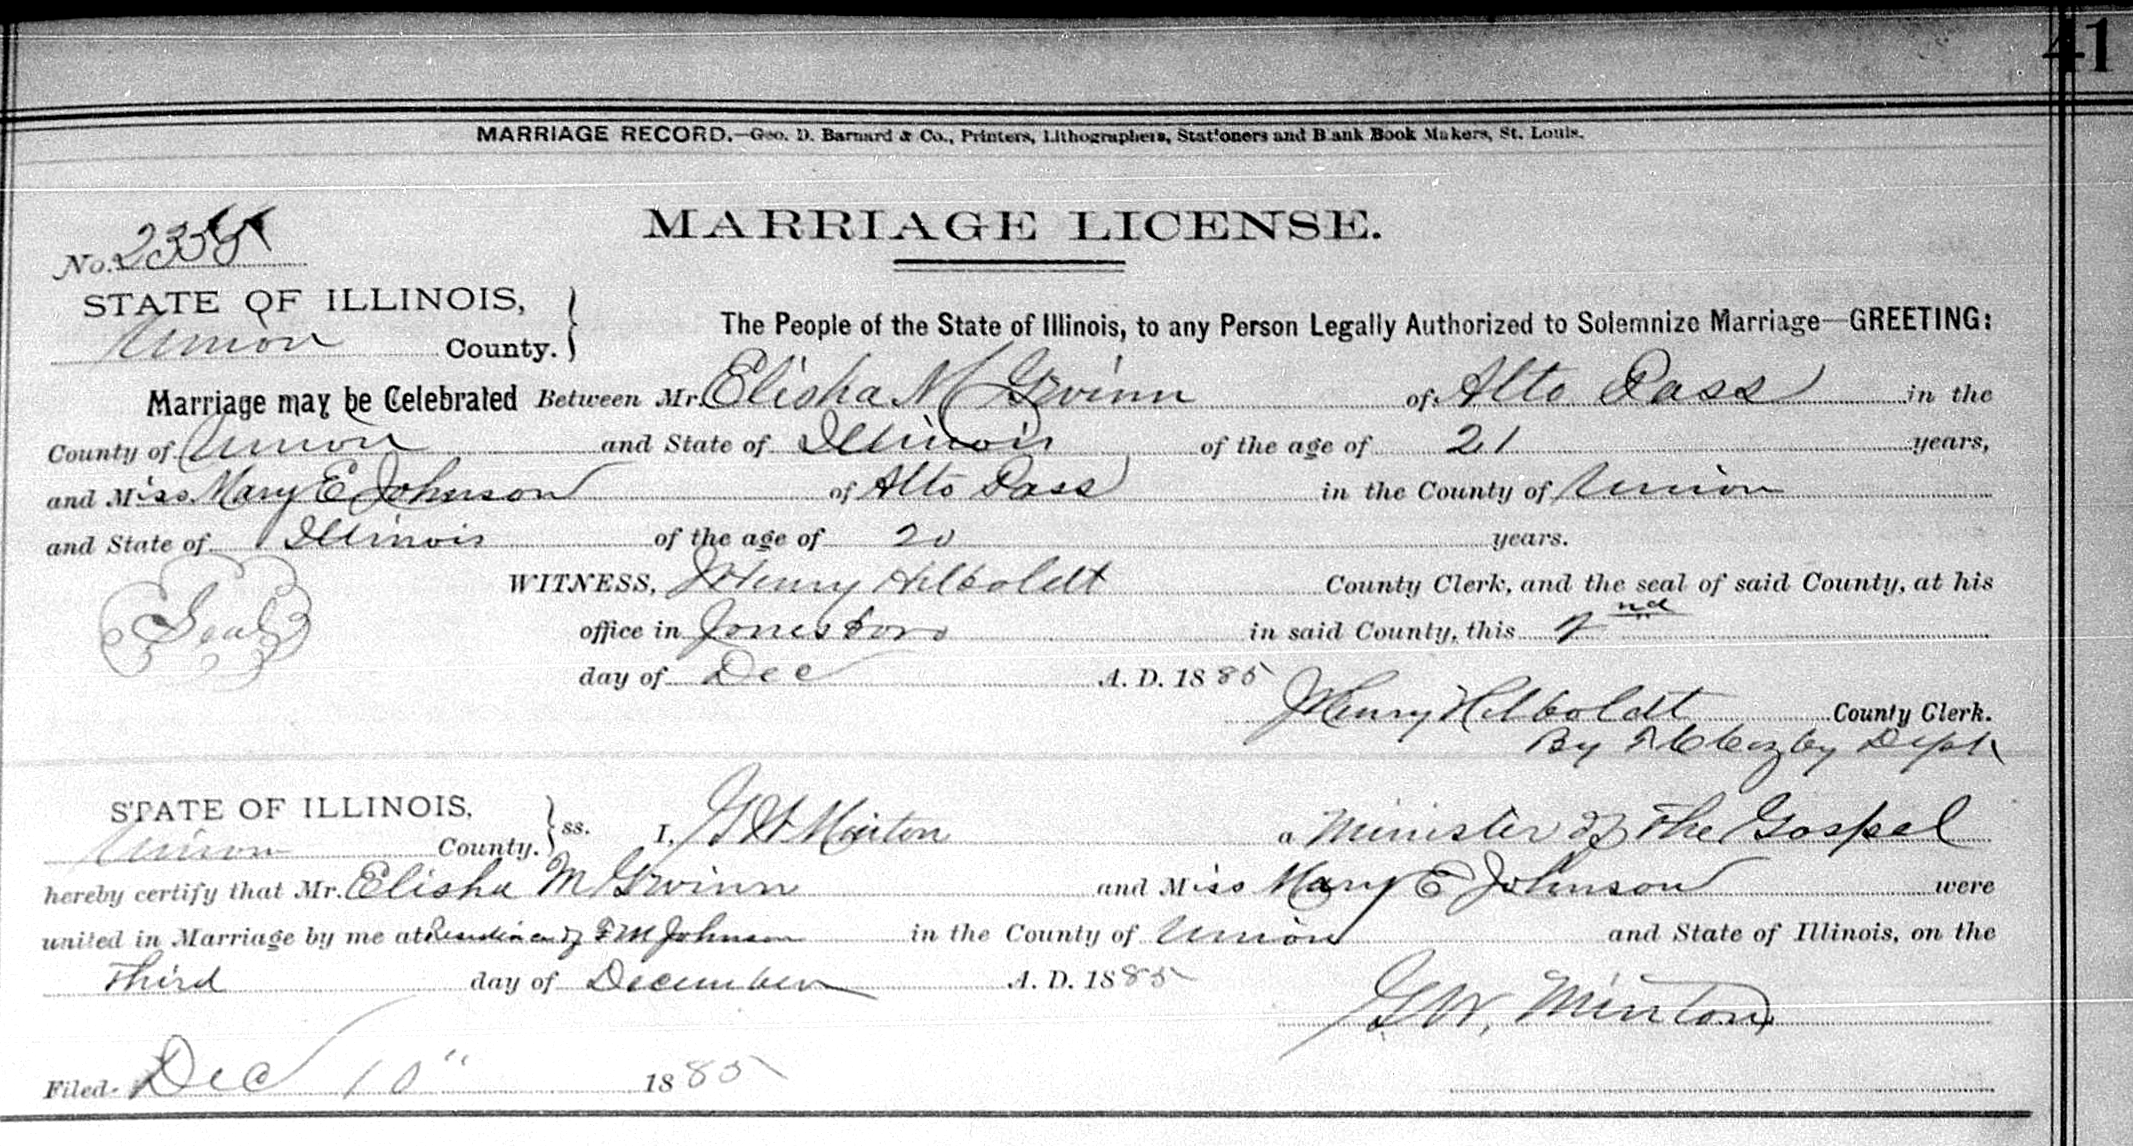 41
MARRIAGE RECORD.—Geo. D. Barnard & Co., Printers, Lithographers, Stationers and Blank Book Makers, St. Louis.
MARRIAGE LICENSE.
No. 2355
STATE OF ILLINOIS,
Union County.
The People of the State of Illinois, to any Person Legally Authorized to Solemnize Marriage—GREETING:
Marriage may be Celebrated Between Mr. Elisha M Gwinn of Alto Pass in the
County of Union and State of Illinois of the age of 21 years,
and Miss Mary E Johnson of Alto Pass in the County of Union
and State of Illinois of the age of 20 years.
Seal
WITNESS, J Henry Hilboldt County Clerk, and the seal of said County, at his
office in Jonesboro in said County, this 2nd
day of Dec A. D. 1885
J Henry Hilboldt County Clerk.
By Dept
STATE OF ILLINOIS,
Union County. ss. I, G W Minton a Minister of The Gospel
hereby certify that Mr. Elisha M Gwinn and Miss Mary E Johnson were
united in Marriage by me at Residence of F M Johnson in the County of Union and State of Illinois, on the
Third day of December A. D. 1885
G W. Minton
Filed Dec 10" 1885